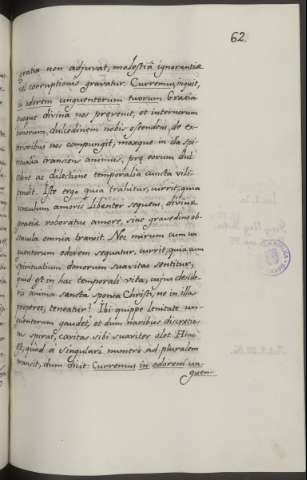 62.
gratia non adjuvat, molestia ignorantiæ
vel corruptionis gravatur. Curremus, inquit,
in odorem unguentorum tuorum. Gratia
quippe divina nos prevenit, et internorum
bonorum, dulcedinem nobis ostendit, de ex-
terioribus nos compungit, maxque in illa spi-
ritualia transiens animus, præ eorum dul
temporalia cuncta vili-
Ist ergo quia trahitur, currit, quia
amoris libenter sequens, divinæ
gratiæ roboratur amore, sive gravedinis ob-
stacula omnia transit. Nec mirum cum un-
guentorum odorem sequatur, currit, quia cum
spiritualium donorum suavitas sentitur,
quid et in hac temporali vita, cujus deside-
ria anima sancta sponsa Christi, ne in illa
properet, teneatur? Ibi quippe lenitate un-
guentorum gaudet, et dum naribus discretio-
nis spirat, caritas sibi suaviter olet. Hinc
est, quod a singulari numero ad pluralem
transit, dum dicit: Curremus in odorem un-
guen-